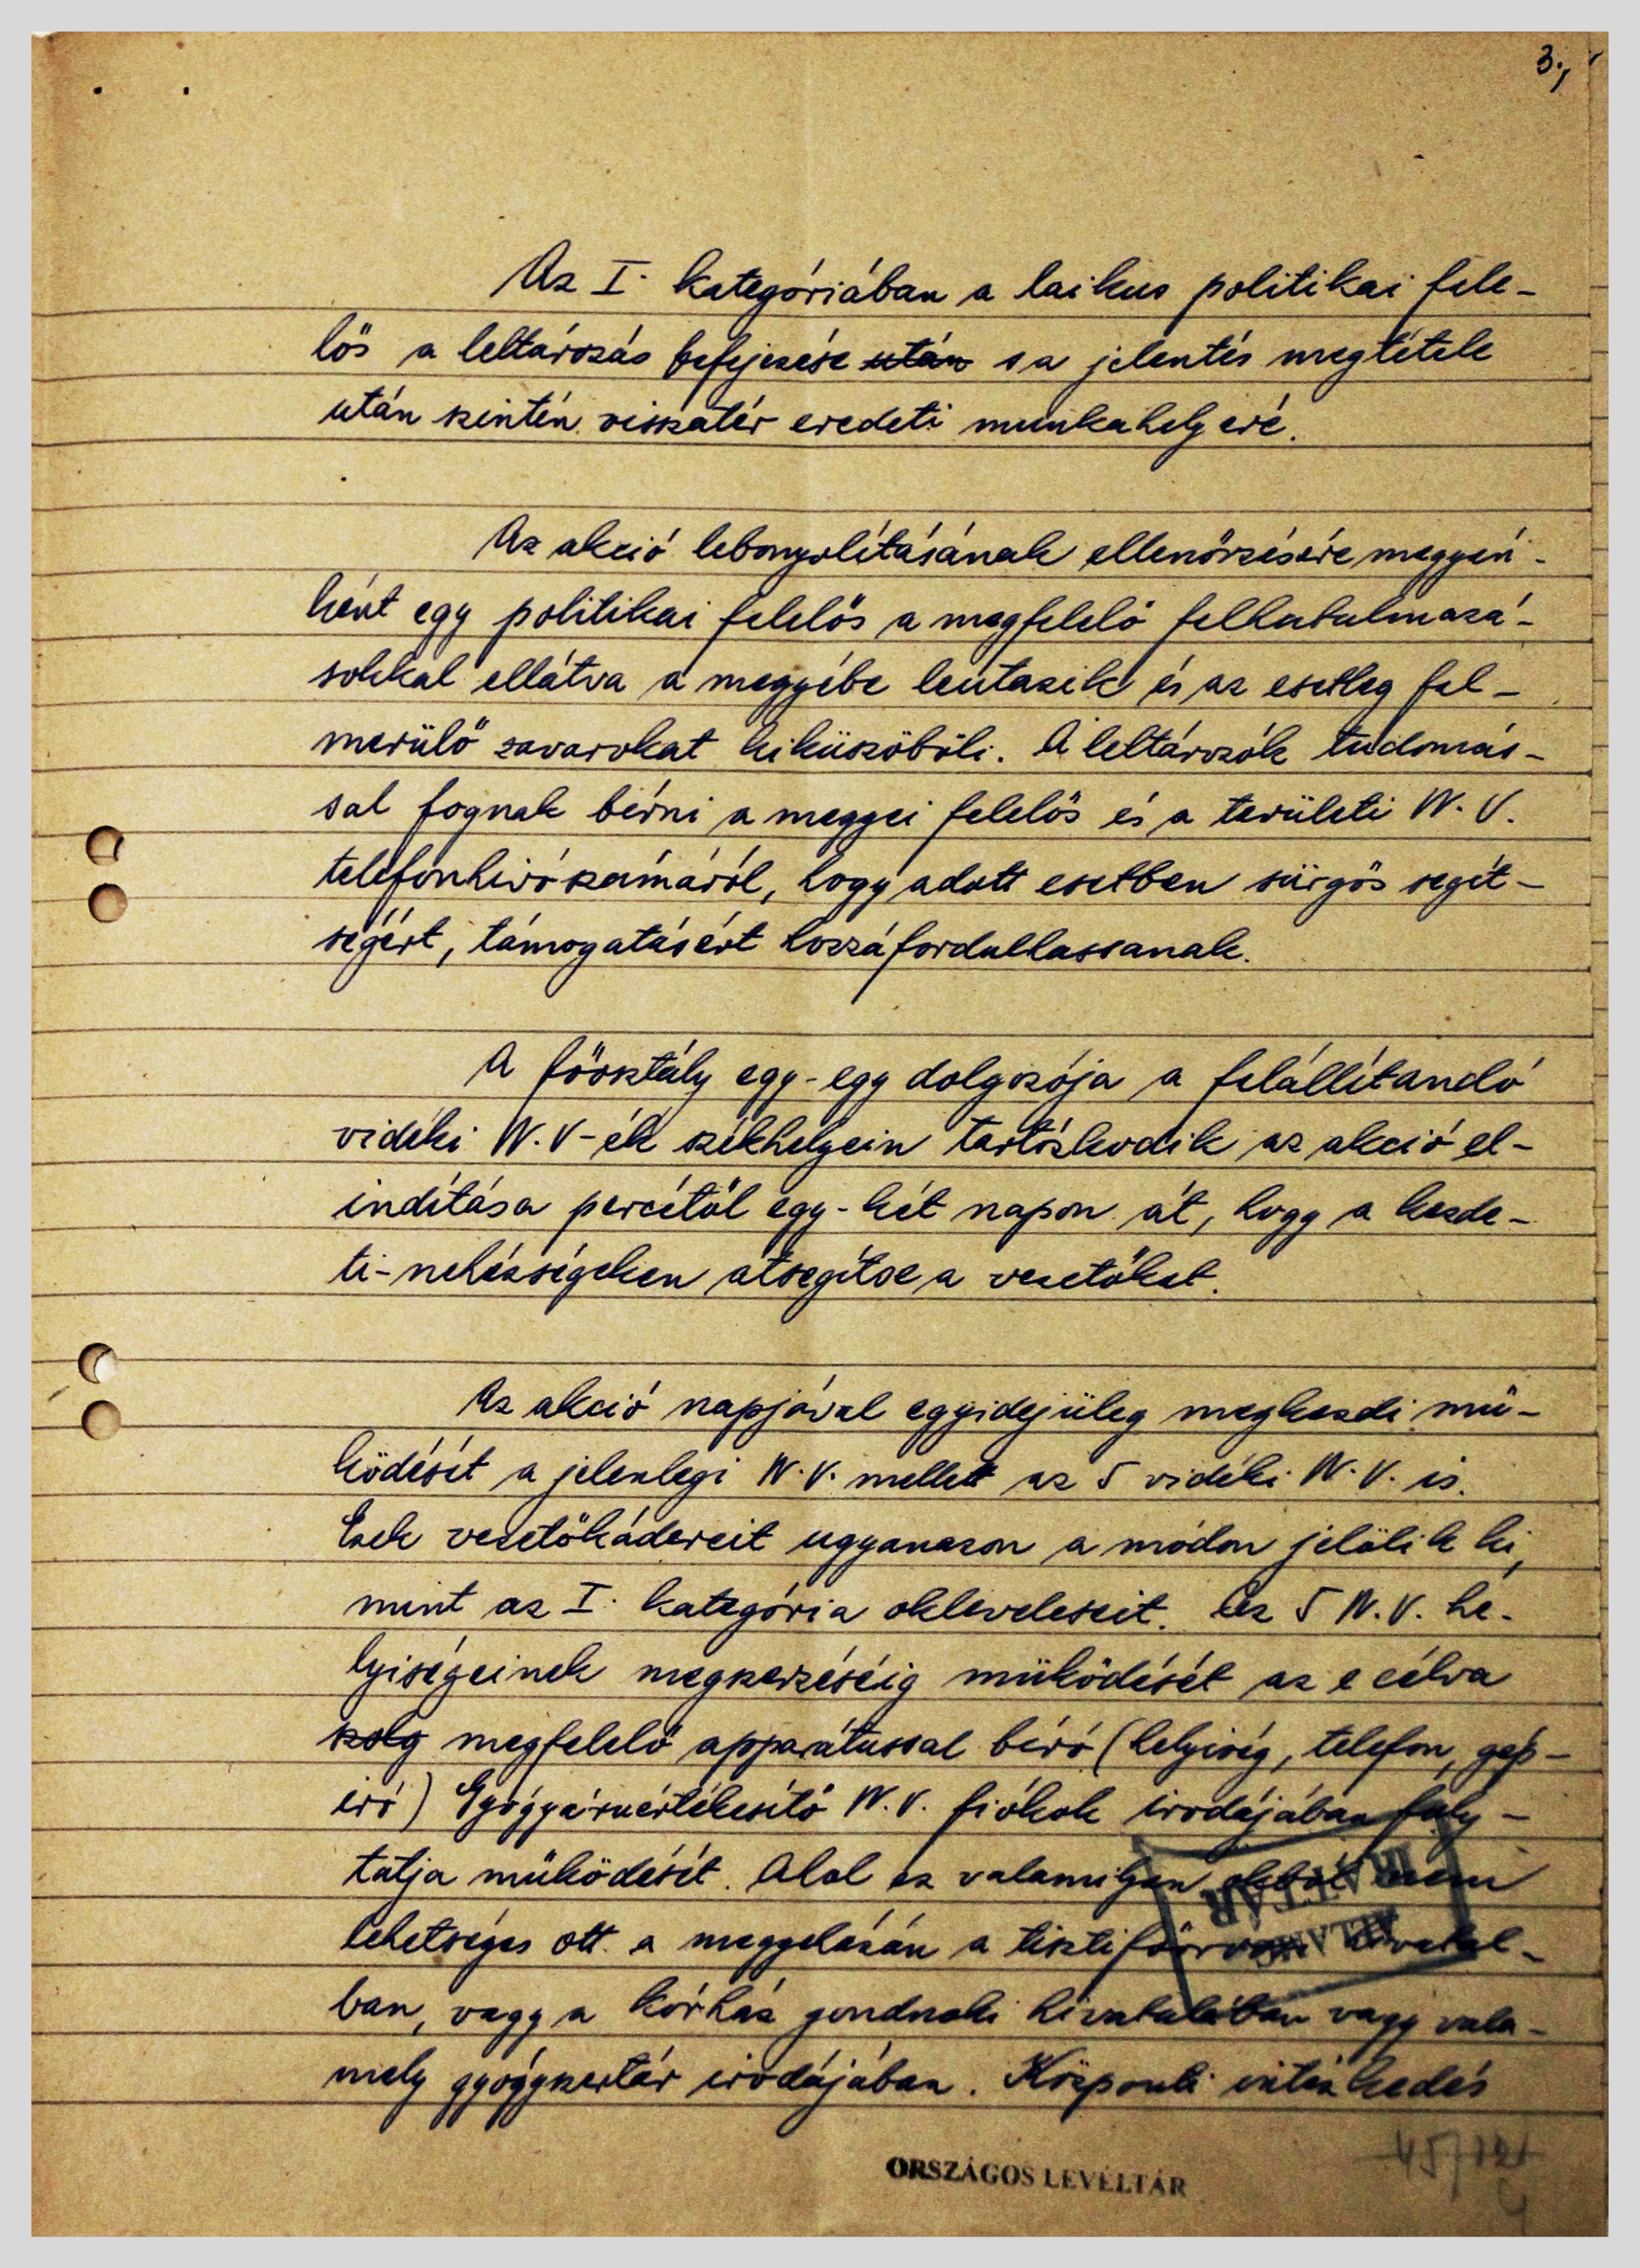 3.,
Az I. kategóriában a laikus politikai fele-
lős a leltározás befejezése után s a jelentés megtétele
után szintén visszatér eredeti munkahelyére.
Az akció lebonyolításának ellenőrzésére megyén-
ként egy politikai felelős a megfelelő felhatalmazá-
sokkal ellátva a megyébe leutazik és az esetleg fel-
merülő zavarokat kiküszöböli. A leltározók tudomás-
sal fognak bírni a megyei felelős és a területi N.V.
telefonhívószámáról, hogy adott esetben sürgős segít-
ségért, támogatásért hozzáfordulhassanak.
A főosztály egy-egy dolgozója a felállítandó
vidéki N.V-ék székhelyein tartózkodik az akció el-
indítása percétől egy-két napon át, hogy a kezde-
ti-nehézségeken átsegítse a vezetőket.
Az akció napjával egyidejüleg megkezdi mű-
ködését a jelenlegi N.V. mellett az 5 vidéki N.V. is.
Ezek vezetőkádereit ugyanazon a módon jelölik ki,
mint az I. kategória okleveleseit. Az 5 N.V. he-
lyiségeinek megszerzéséig működését az e célra
szolg megfelelő apparátussal bíró (helyiség, telefon, gép-
író) Gyógyáruértékesítő N.V. fiókok irodájában foly-
tatja működését. Ahol ez valamilyen okból nem
lehetséges ott a megyeházán a tisztifőorvosi hivatal-
ban, vagy a kórház gondnoki hivatalában vagy vala-
mely gyógyszertár irodájában. Központi intézkedés
ORSZÁGOS LEVÉLTÁR